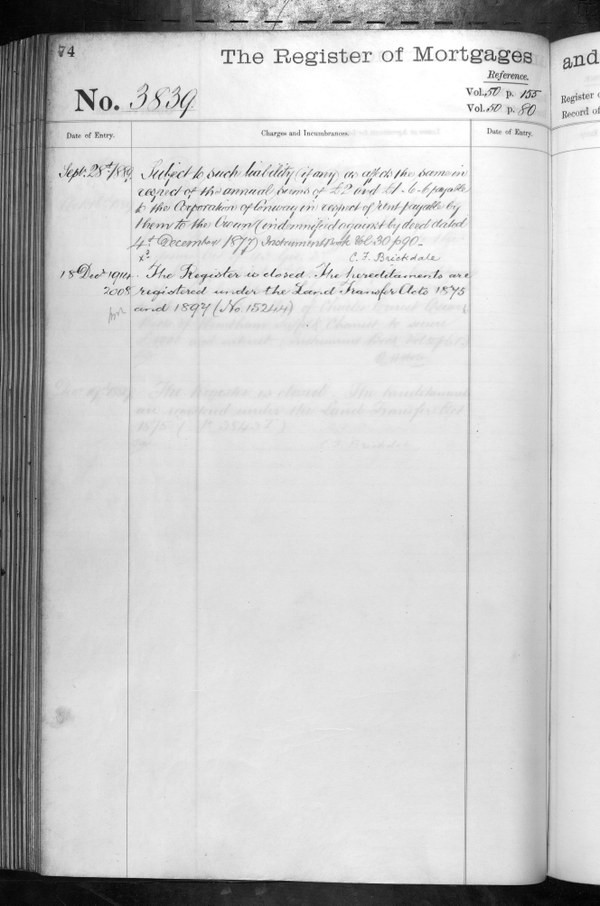 74
The Register of Mortgages
and
Reference.
No. 3839
Vol. 50 p. 155
Vol. 50 p. 80
Register
Record of
Date of Entry.
Charges and Incumbrances.
Date of Entry.
Sept: 28th 1889 Subject to such liability (if any) as affects the same in
respect of the annual sums of £2 and £1. 6. 6 payable
to the Corporation of Conway in respect of rent payable by
them to the Crown (indemnified against by deed dated
4th December 1877) Instrument Book Vol 30 p 90
C. F. Brickdale
18 Decr 1914. The Register is closed. The hereditaments are
2008 registered under the Land Transfer Acts 1875
and 1897 (No. 15244)